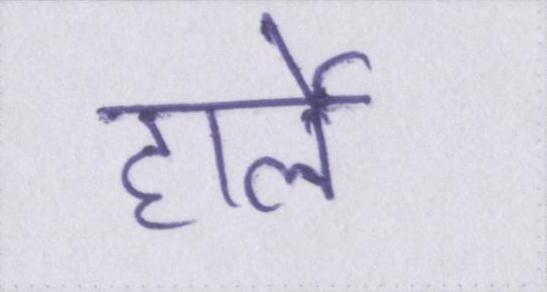 हार्ले